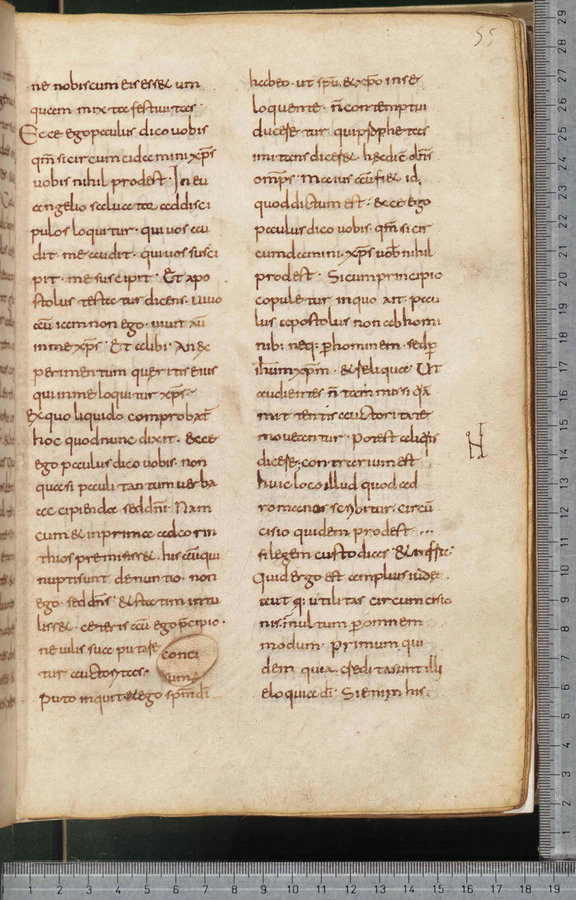 55
ne nobiscum eis esset um
quam mixta festiuitas
Ecce ego paulus dico uobis
qm̄ si circumcidamini xp̄s
uobis nihil prodest. In eu
angelio saluator ad disci
pulos loquitur. qui uos au
dit. me audit. qui uos susci
pit. me suscipit. Et apo
stolus testatur dicens. uiuo
aū iam non ego. uiuit aū
in me xp̄s. Et alibi. An ex
perimentum queritis eius
qui in me loquitur xp̄s.
Ex quo liquido comprobat̄
hoc quod nunc dixit. ecce
ego paulus dico uobis. non
quasi pauli tantum uerba
accipienda sed dn̄i. Nam
cum et in prima ad corin
thios premisisset. his aūqui
nuptisunt denuntio. non
ego sed dn̄s. et statim intu
lisset. ceteris aū ego p̄cipio.
ne uilis sua putase
tur auctoritas.
conci
um
Puto inquit et ego sp̄m dī
habeo. ut sp̄u. et xp̄o in se
loquente. n̄ contemptui
duceretur. qui p̄phetas
imitans diceret hęc dic̄ dn̄s
omp̄s. Maius aū fiet id.
quod dictum est. ecce ego
paulus dico uobis. qm̄ si cir
cumdamini. xp̄s uob̄ nihil
prodest. Sicum principio
copuletur in quo ait. pau
lus apostolus non ab homi
nib; neq; p̄ hominem. sed p̄
ih̄um xp̄m. et reliqua. Ut
audientes n̄ tam missi q̄ā
mittentis auctoritate
mouerentur. Potest aliq̄s
dicere; contrarium est
huic loco illud quod ad
romanos scribitur. circū
cisio quidem prodest ...
si legem custodias. et infra
Quid ergo est amplius iudeę
aut q; utilitas circumcisio
nis. multum p̄ omnem
modum. Primum qui
dem quia credita sunt illi
eloquia dī. Si enim his;